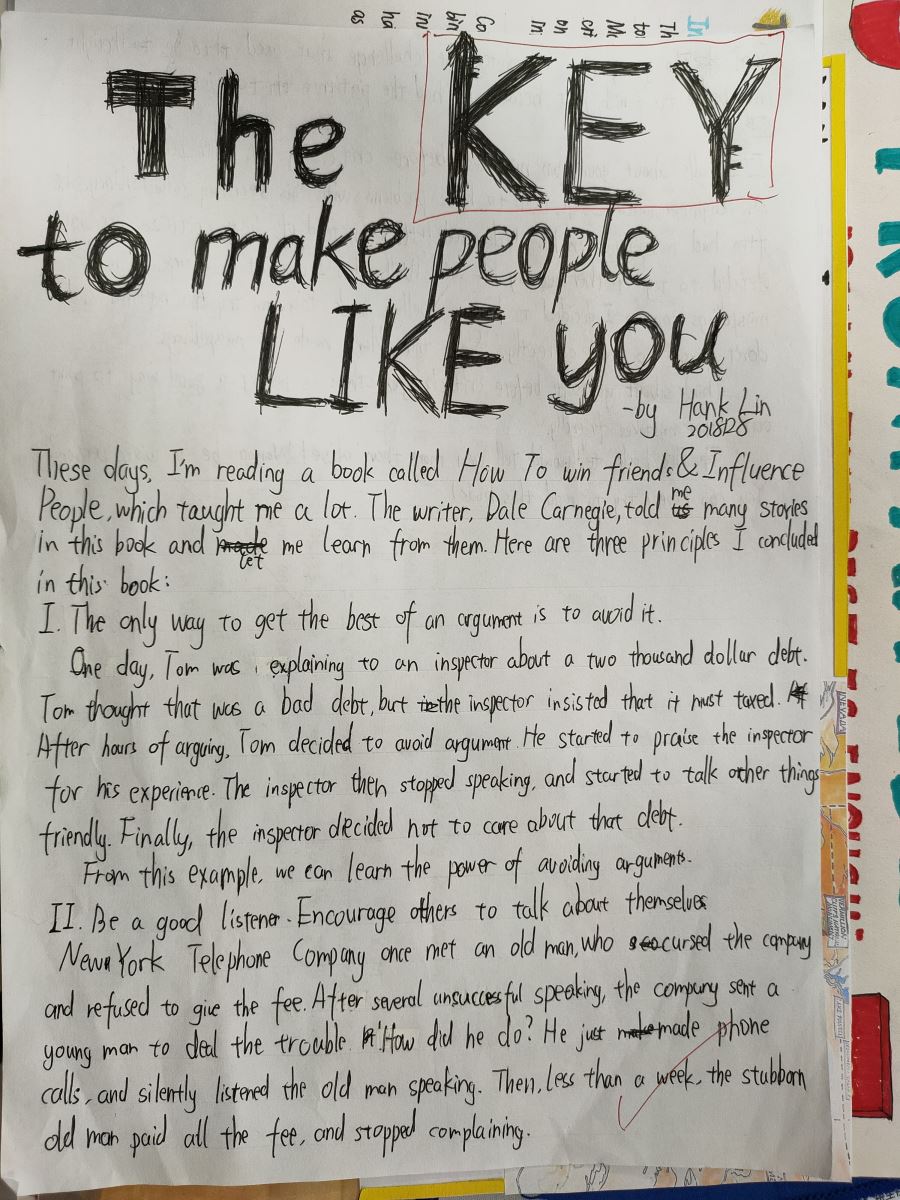 The KEY
to make people
LIKE you
-by Hank Lin
2018D28
These days, I'm reading a book called How To win friends & Influence
People, which taught me a lot. The writer, Dale Carnegie, told me many stories
in this book and let me learn from them. Here are three principles I concluded
in this book:
I. The only way to get the best of an argument is to avoid it.
One day, Tom was explaining to an inspector about a two thousand dollar debt.
Tom thought that was a bad debt, but the inspector insisted that it must taxed.
After hours of arguing, Tom decided to avoid argument. He started to praise the inspector
for his experience. The inspector then stopped speaking, and started to talk other things
friendly. Finally, the inspector decided not to care about that debt.
From this example, we can learn the power of avoiding arguments.
II. Be a good listener. Encourage others to talk about themselves
New York Telephone Company once met an old man, who cursed the company
and refused to give the fee. After several unsuccessful speaking, the company sent a
young man to deal the trouble. How did he do? He just made phone
calls, and silently listened the old man speaking. Then, less than a week, the stubborn
old man paid all the fee, and stopped complaining.
NEVADA